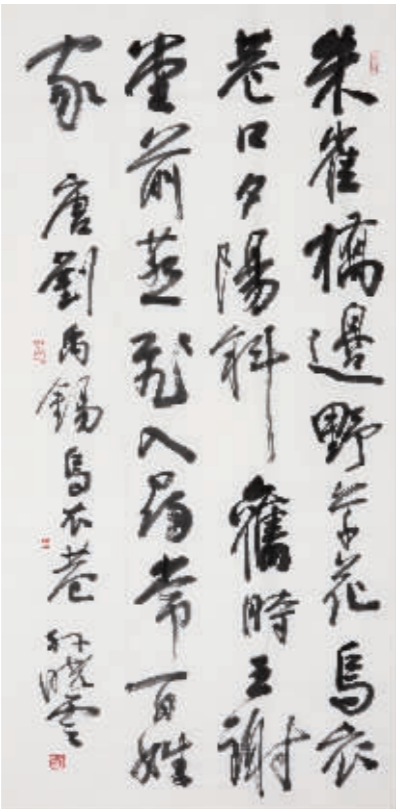 朱雀橋邊野草花烏衣
巷口夕陽斜舊時王謝
堂前燕飛入尋常百姓
家 唐劉禹錫烏衣巷 孫曉雲